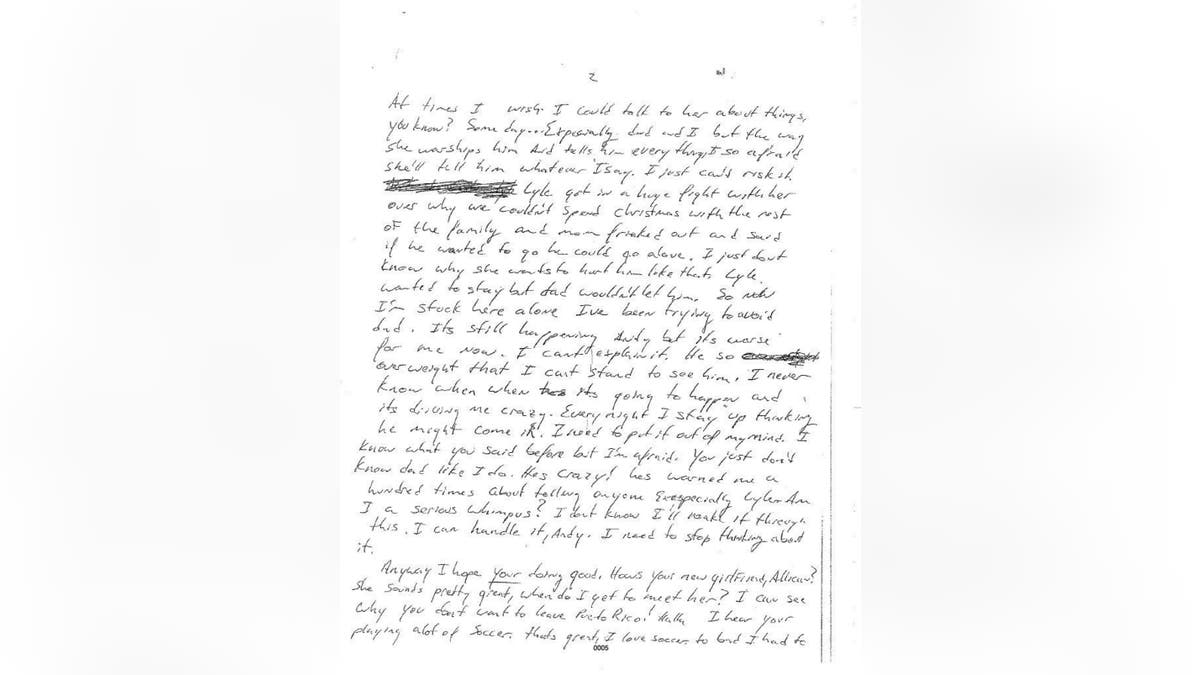 2
At times I wish I could talk to her about things,
you know? Some day... Expecially dad and I but the way
she warships him and tells him everything, I so afraid
she'll tell him whatever I say. I just cant risk it
Lyle got in a huge fight with her
over why we couldn't spend Christmas with the rest
of the family and mom friaked out and said
if he wanted to go he could go alone. I just dont
know why she wants to hurt him like that. Lyle
wanted to stay but dad wouldn't let him. So now
I'm stuck here alone I've been trying to avoid
dad. Its still happening Andy but its worse
for me now. I cant explain it. He so
overweight that I cant stand to see him. I never
know when when its going to happen and
its driving me crazy. Every night I stay up thinking
he might come in. I need to put it out of my mind. I
know what you said before but I'm afraid. You just don't
know dad like I do. Hes crazy! hes warned me a
hundred times about telling anyone Exespecially Lyle. Am
I a serious whimpus? I dont know I'll make it through
this. I can handle it, Andy. I need to stop thinking about
it.
Anyway I hope your doing good. Hows your new girlfriend,
She sounds pretty great, when do I get to meet her? I can see
why you dont want to leave Puerto Rico! Haha I hear your
playing alot of Soccer. thats great, I love soccer to but I had to
0005